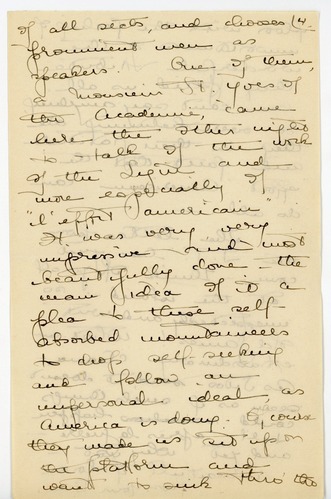 of all sects, and chooses (4.
prominent men as
speakers. One of them,
Monsieur of
the Academie, came
here the other night
to talk of the work
of the Ligue and
more especially of
"l'effort americain"
It was very very
impressive and most
beautifully done - the
main idea of it a
plea to these self
absorbed mountaineers
to drop self seeking
and follow an
impersonal ideal, as
America is doing. Of course
they made us sit up on
the platform and
want to sink thro' the